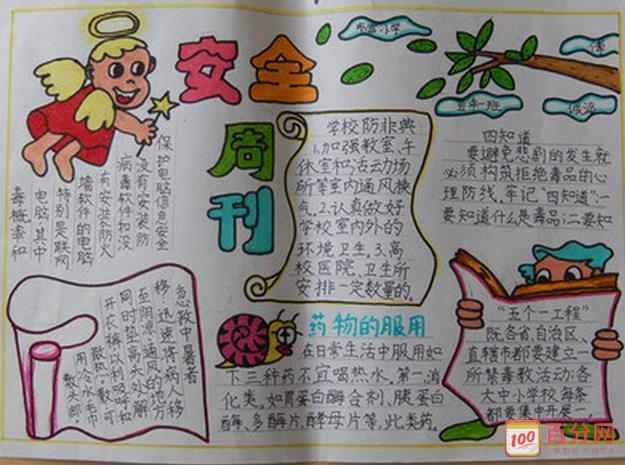 安全
周刊
保护电脑信息安全
没有安装防
病毒软件和没
有安装防火
墙软件的电脑
特别是联网
电脑,其中
毒概率和
学校防非典
1.加强教室、午
休室和活动场
所等室内通风换
气。2.认真做好
学校室内外的
环境卫生。3.高
校医院、卫生所
安排一定数量的。
五年一班
四知道
要避免悲剧的发生就
必须构筑拒绝毒品的心
理防线。牢记“四知道”:一
要知道什么是毒品;二要知
急救中暑者
移:迅速将病人移
至阴凉、通风的地方
同时垫高头处,解
开衣裤以利呼吸和
散热。敷:可
用冷水毛巾
敷头部,
药物的服用
在日常生活中服用如
下三种药不宜喝热水。第一,消
化类。如胃蛋白酶合剂,胰蛋白
酶、多酶片、酵母片等,此类药。
“五个一工程”
院各省、自治区、
直辖市都要建立一
所禁毒教活动;各
大中小学校每条
都要集中开展一。
100
百分网